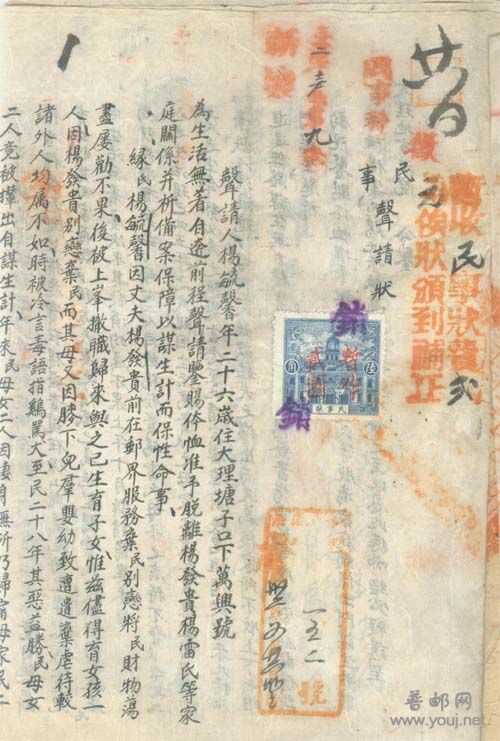 廿日
暫收民事狀費弍
元俟狀頒到補正
民事聲請狀
暫作
貳角
民事狀
銷
銷
一五二號
聲請人楊毓馨年二十六歲住大理塘子口下萬興號
為生活無著自逩前程聲請鑒賜体恤准予脱離楊發貴楊雷氏等家
庭關係并祈備案保障以謀生計而保性命事
緣氏楊毓馨因丈夫楊發貴前在郵界服務棄民別戀將民財物蕩
盡屢勸不果後被上峯撤職歸來與之已生育子女惟兹僅得育女孩一
人因楊發貴別戀棄民而其母又因勝下兒羣嬰幼致遭遺棄虐待較
諸外人均属不如時被冷言毒語指鷄罵犬至民二十八年其惡益勝民母女
二人竟被攆出自謀生計年來民母女二人因棲身無所乃歸甯母家民二
普邮网
www.youj.net